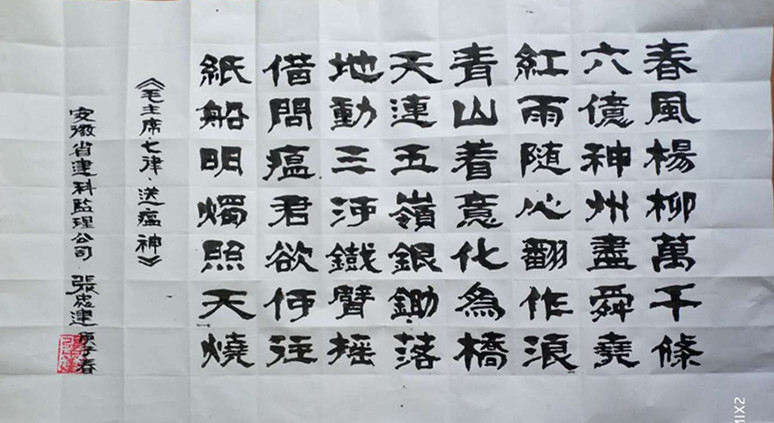 春風楊柳萬千條
六億神州盡舜堯
紅雨随心翻作浪
青山着意化為橋
天連五嶺銀鋤落
地動三河鐵臂摇
借問瘟君欲何往
紙船明燭照天燒
《毛主席七律·送瘟神》
安徽省建科監理公司 張忠連 庚子春
MIX2